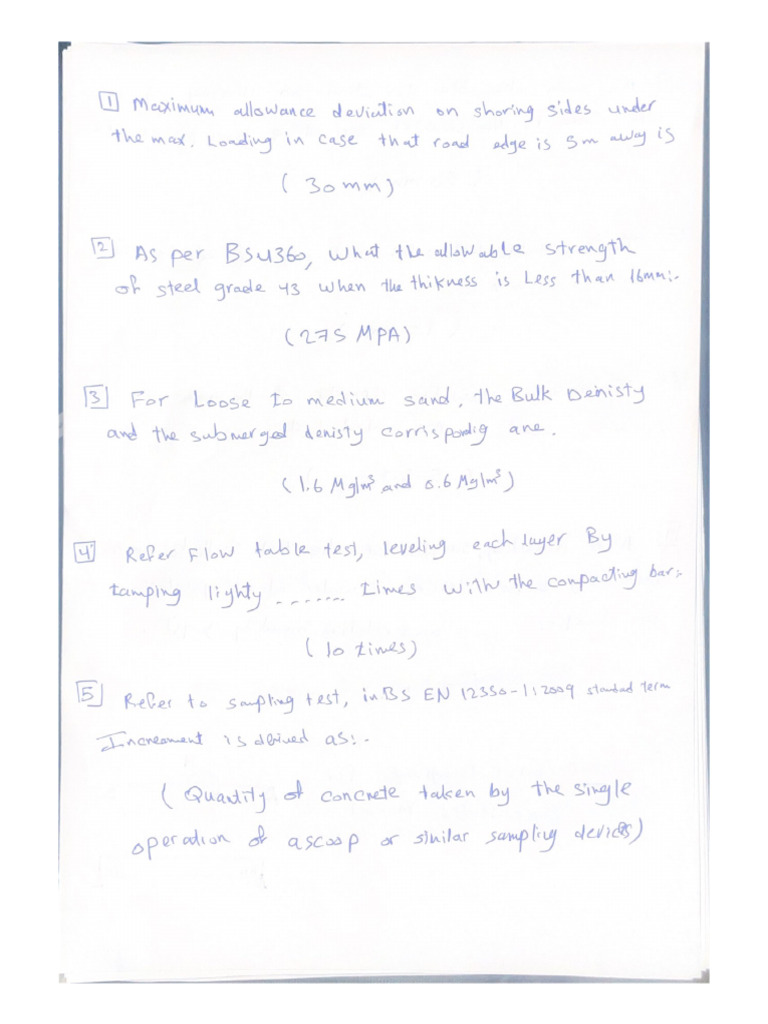 1 Maximum allowance deviation on shoring sides under
the max. Loading in case that road edge is 5m away is
( 30 mm )
2 As per BS4360, what the allowable strength
of steel grade 43 when the thikness is Less than 16mm:-
( 275 MPA )
3 For Loose to medium sand, the Bulk Denisty
and the submerged denisty corrispondig are.
( 1.6 Mg/m³ and 0.6 Mg/m³ )
4 Refer Flow table test, leveling each layer By
tamping lighty ....... times with the compacting bar:-
( 10 times )
5 Refer to sampling test, in BS EN 12350-1:2009 standad term
Increament is defined as:-
( Quantity of concrete taken by the single
operation of a scoop or similar sampling devices )